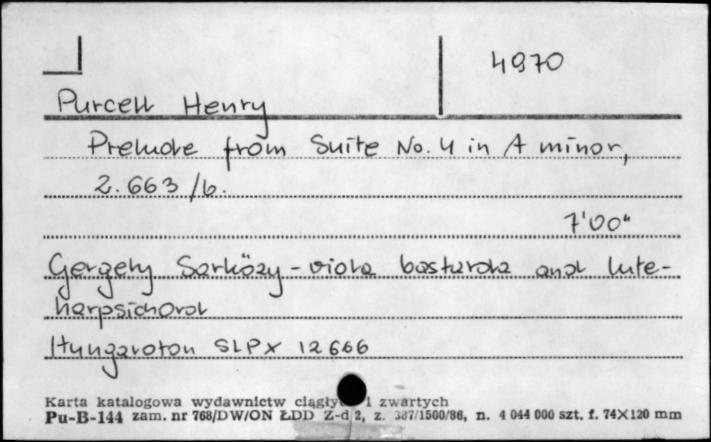 4970
Purcell Henry
Prelude from Suite No. 4 in A minor,
Z. 663/b.
7'00"
Gergely Sarközy - viola bastarda and lute-
harpsichord
Hungaroton SLPX 12666
Karta katalogowa wydawnictw i zwartych
Pu-B-144 zam. nr 768/DW/ON ŁDD Z-d 2, z. 387/1500/86, n. 4 044 000 szt. f. 74X120 mm